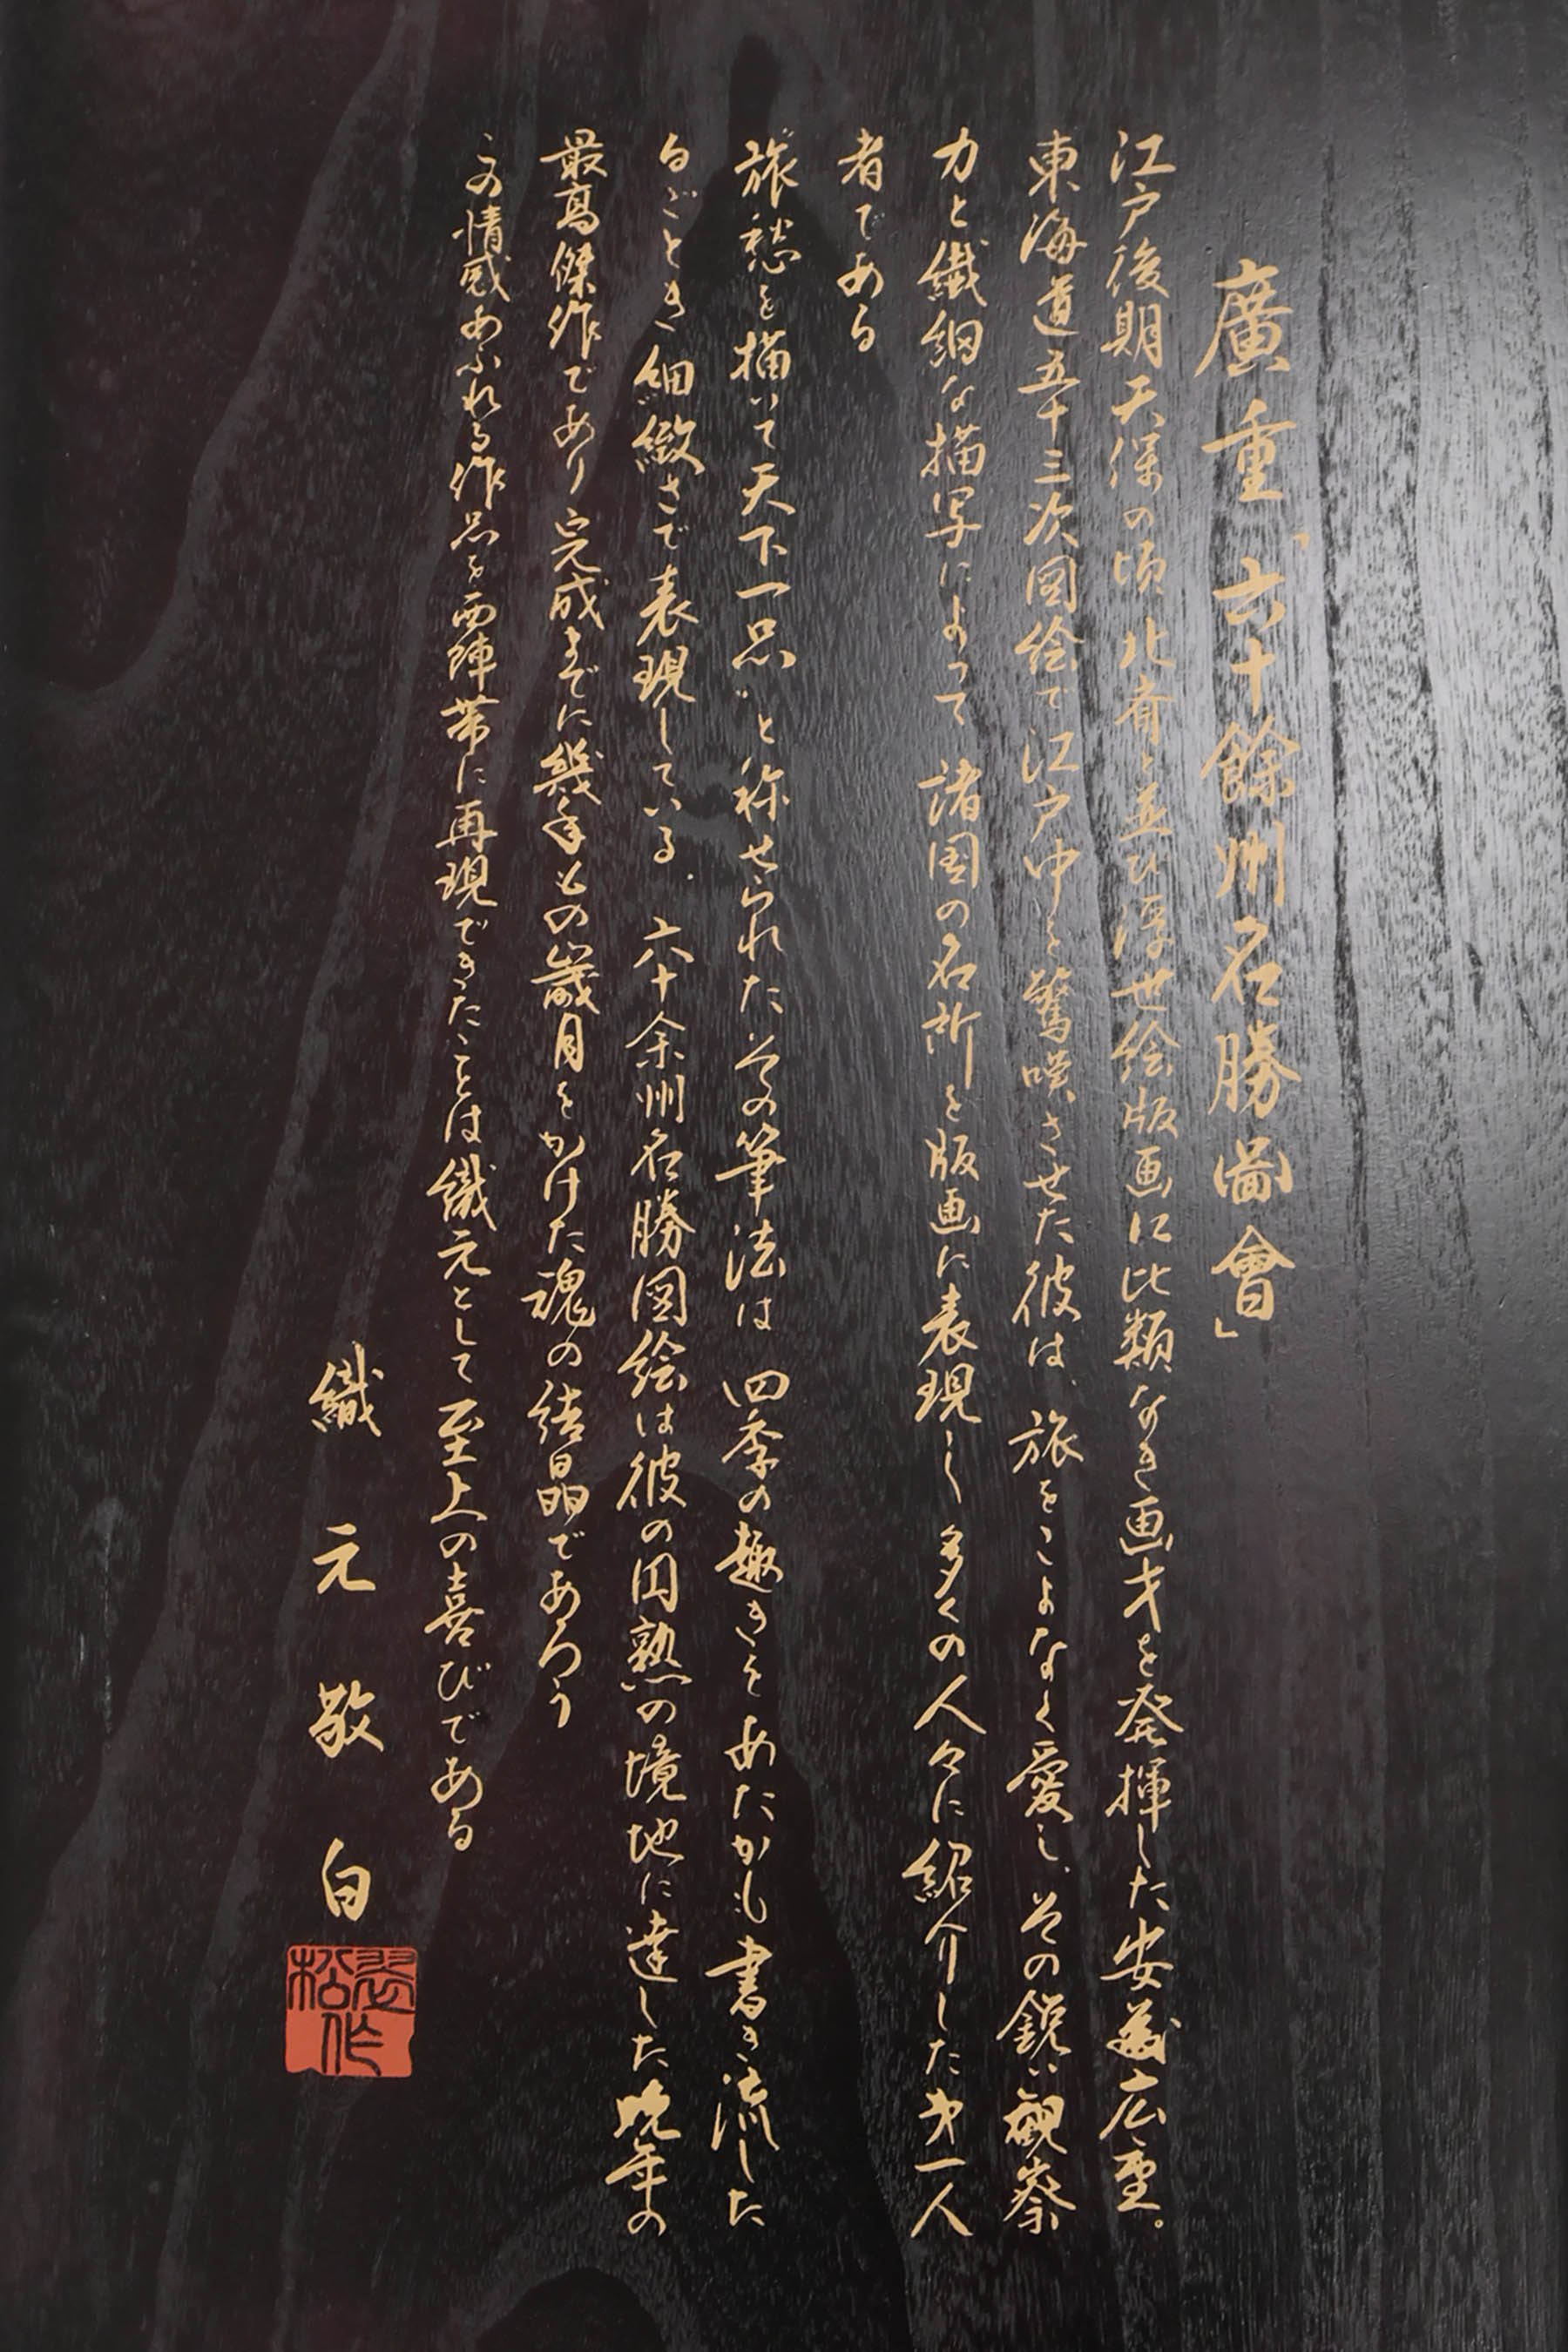 廣重「六十餘州名勝圖會」
江戸後期天保の頃北斎と並び浮世絵版画に比類なき画才を発揮した安藤広重。
東海道五十三次図絵で江戸中を驚嘆させた彼は、旅をこよなく愛し、その鋭い観察
力と繊細な描写によって諸国の名所を版画に表現し多くの人々に紹介した第一人
者である
旅愁を描いて天下一品〟と称せられたその筆法は四季の趣きをあたかも書き流した
るごとき細緻さで表現している、六十余州名勝図絵は彼の円熟の境地に達した晩年の
最高傑作であり完成までに幾年もの歳月をかけた魂の結晶であろう
この情感あふれる作品を西陣帯に再現できたことは織元として至上の喜びである
織元敬白